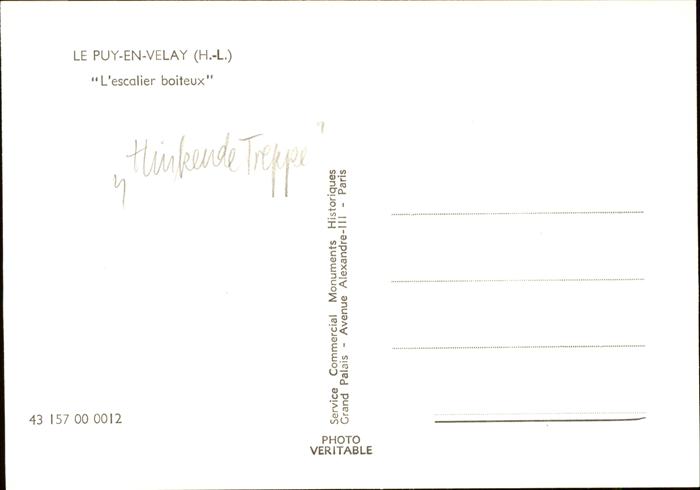 LE PUY-EN-VELAY (H.-L.)
"L'escalier boiteux"
„Hinkende Treppe"
Service Commercial Monuments Historiques
Grand Palais - Avenue Alexandre-III - Paris
43 157 00 0012
PHOTO
VERITABLE